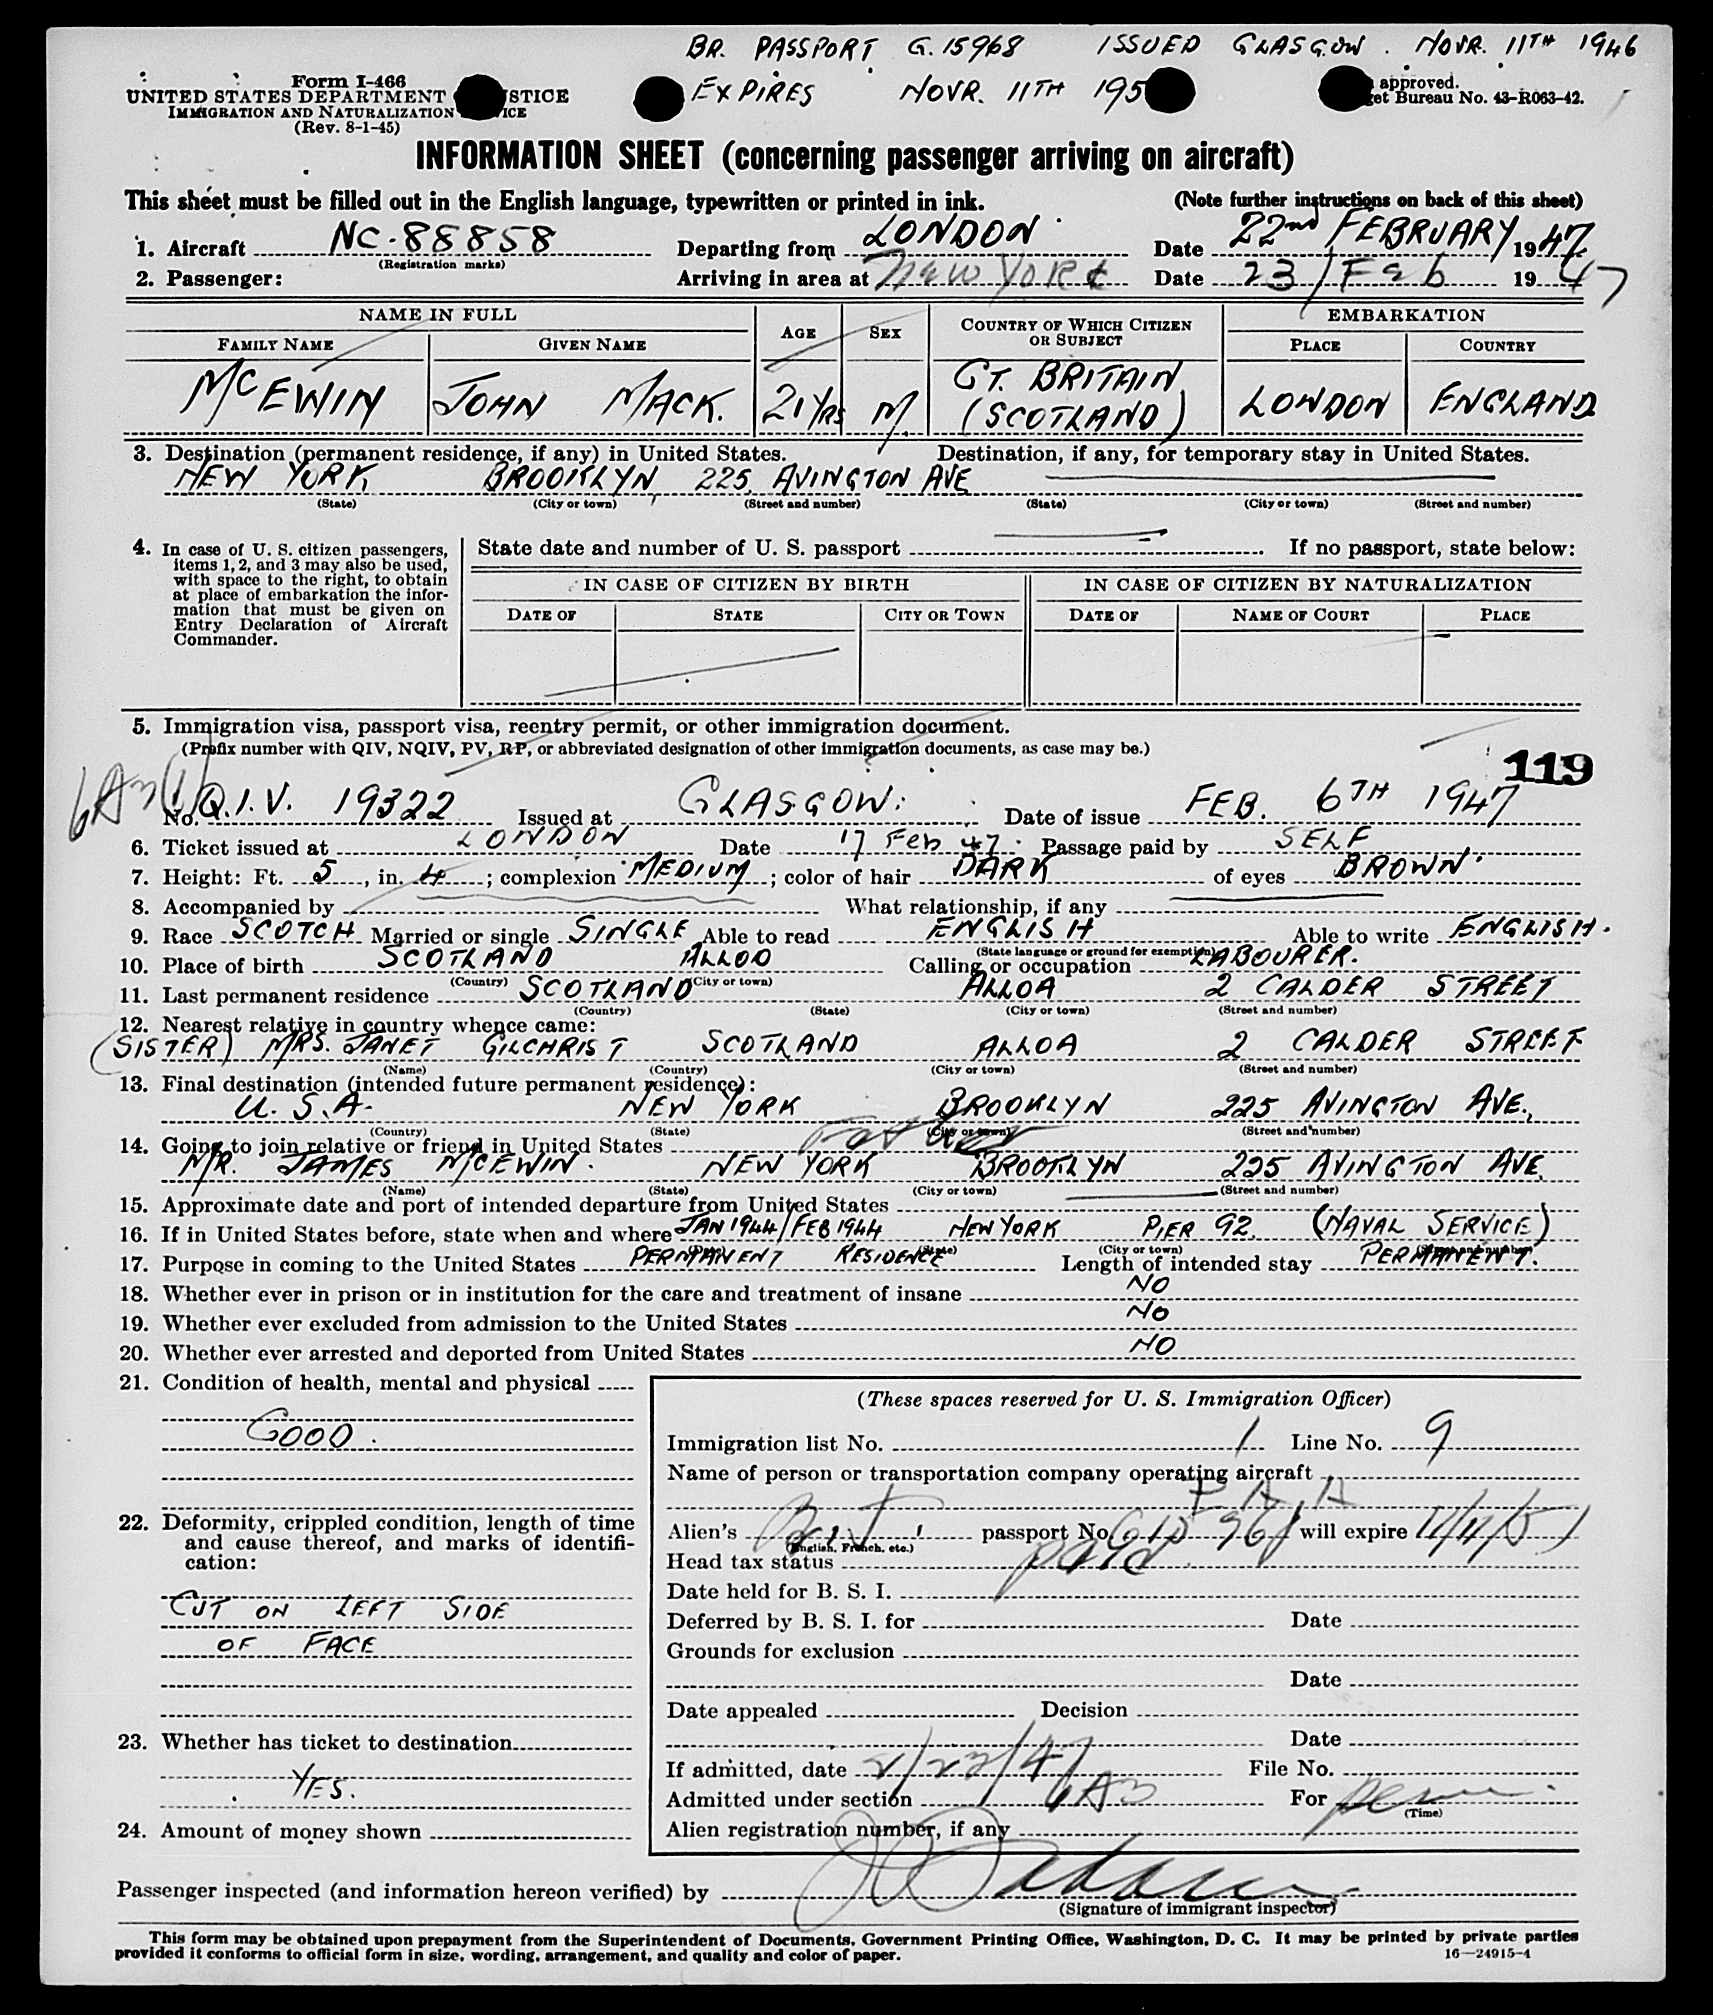 BR. PASSPORT G.15968 ISSUED GLASGOW. NOVR. 11TH 1946
EXPIRES NOVR. 11TH 195
Form I-466
UNITED STATES DEPARTMENT STICE
IMMIGRATION AND NATURALIZATION ICE
(Rev. 8-1-45)
approved.
et Bureau No. 43-R063-42.
INFORMATION SHEET (concerning passenger arriving on aircraft)
This sheet must be filled out in the English language, typewritten or printed in ink. (Note further instructions on back of this sheet)
1. Aircraft NC-88858 Departing from LONDON Date 22nd FEBRUARY 1947
(Registration marks)
2. Passenger: Arriving in area at New York Date 23/Feb 1947
NAME IN FULL AGE SEX COUNTRY OF WHICH CITIZEN OR SUBJECT EMBARKATION
FAMILY NAME GIVEN NAME PLACE COUNTRY
McEWIN JOHN MACK. 21 YRS M. GT. BRITAIN (SCOTLAND) LONDON ENGLAND
3. Destination (permanent residence, if any) in United States. Destination, if any, for temporary stay in United States.
NEW YORK, BROOKLYN, 225, AVINGTON AVE
(State) (City or town) (Street and number) (State) (City or town) (Street and number)
4. In case of U. S. citizen passengers, items 1, 2, and 3 may also be used, with space to the right, to obtain at place of embarkation the information that must be given on Entry Declaration of Aircraft Commander.
State date and number of U. S. passport If no passport, state below:
IN CASE OF CITIZEN BY BIRTH IN CASE OF CITIZEN BY NATURALIZATION
DATE OF STATE CITY OR TOWN DATE OF NAME OF COURT PLACE
5. Immigration visa, passport visa, reentry permit, or other immigration document.
(Prefix number with QIV, NQIV, PV, RP, or abbreviated designation of other immigration documents, as case may be.)
119
No. Q.I.V. 19322 Issued at GLASGOW. Date of issue FEB. 6TH 1947
6. Ticket issued at LONDON Date 17 Feb 47. Passage paid by SELF
7. Height: Ft. 5, in. 4; complexion MEDIUM; color of hair DARK of eyes BROWN
8. Accompanied by What relationship, if any
9. Race SCOTCH Married or single SINGLE Able to read ENGLISH Able to write ENGLISH.
(State language or ground for exemption)
10. Place of birth SCOTLAND ALLOA Calling or occupation LABOURER.
(Country) (City or town)
11. Last permanent residence SCOTLAND ALLOA 2 CALDER STREET
(Country) (State) (City or town) (Street and number)
12. Nearest relative in country whence came:
(SISTER) MRS. JANET GILCHRIST SCOTLAND ALLOA 2 CALDER STREET
(Name) (Country) (City or town) (Street and number)
13. Final destination (intended future permanent residence):
U.S.A. NEW YORK BROOKLYN 225 AVINGTON AVE.,
(Country) (State) (City or town) (Street and number)
14. Going to join relative or friend in United States Father
MR. JAMES McEWIN. NEW YORK BROOKLYN 225 AVINGTON AVE.
(Name) (State) (City or town) (Street and number)
15. Approximate date and port of intended departure from United States
16. If in United States before, state when and where JAN 1944/FEB 1944 NEW YORK PIER 92. (NAVAL SERVICE)
(State) (City or town) (Street and number)
17. Purpose in coming to the United States PERMANENT RESIDENCE Length of intended stay PERMANENT.
18. Whether ever in prison or in institution for the care and treatment of insane NO
19. Whether ever excluded from admission to the United States NO
20. Whether ever arrested and deported from United States NO
21. Condition of health, mental and physical
GOOD.
22. Deformity, crippled condition, length of time and cause thereof, and marks of identification:
CUT ON LEFT SIDE
OF FACE
23. Whether has ticket to destination
YES.
24. Amount of money shown
(These spaces reserved for U. S. Immigration Officer)
Immigration list No. 1 Line No. 9
Name of person or transportation company operating aircraft
P.A.A
Alien's Brit passport No. G 15968 will expire 11/11/51
(English, French, etc.)
Head tax status paid
Date held for B. S. I.
Deferred by B. S. I. for Date
Grounds for exclusion
Date
Date appealed Decision
Date
If admitted, date 2/23/47 File No.
Admitted under section 6A3 For perm
(Time)
Alien registration number, if any
Passenger inspected (and information hereon verified) by
(Signature of immigrant inspector)
This form may be obtained upon prepayment from the Superintendent of Documents, Government Printing Office, Washington, D. C. It may be printed by private parties
provided it conforms to official form in size, wording, arrangement, and quality and color of paper. 16—24915-4